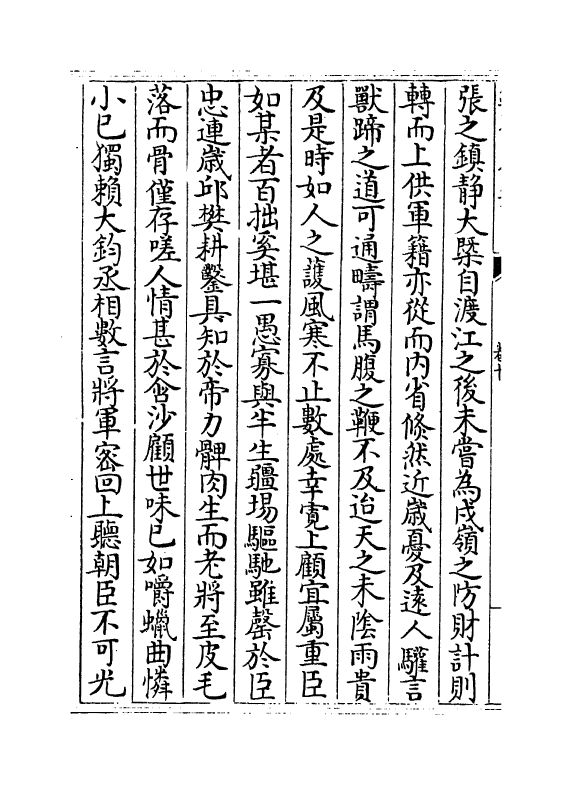 張之鎮靜大槩自渡江之後未嘗為戍嶺之防財計則
轉而上供軍籍亦從而内省倐然近歲憂及逺人驩言
獸蹄之道可通疇謂馬腹之鞭不及迨天之未隂雨貴
及是時如人之䕶風寒不止數處幸寛上顧宜屬重臣
如某者百拙奚堪一愚寡與半生疆埸驅馳雖罄於臣
忠連歲邱樊耕鑿具知於帝力髀肉生而老將至皮毛
落而骨僅存嗟人情甚於含沙顧世味已如嚼蠟曲憐
小已獨賴大鈞丞相數言將軍宻回上聽朝臣不可光
卷十